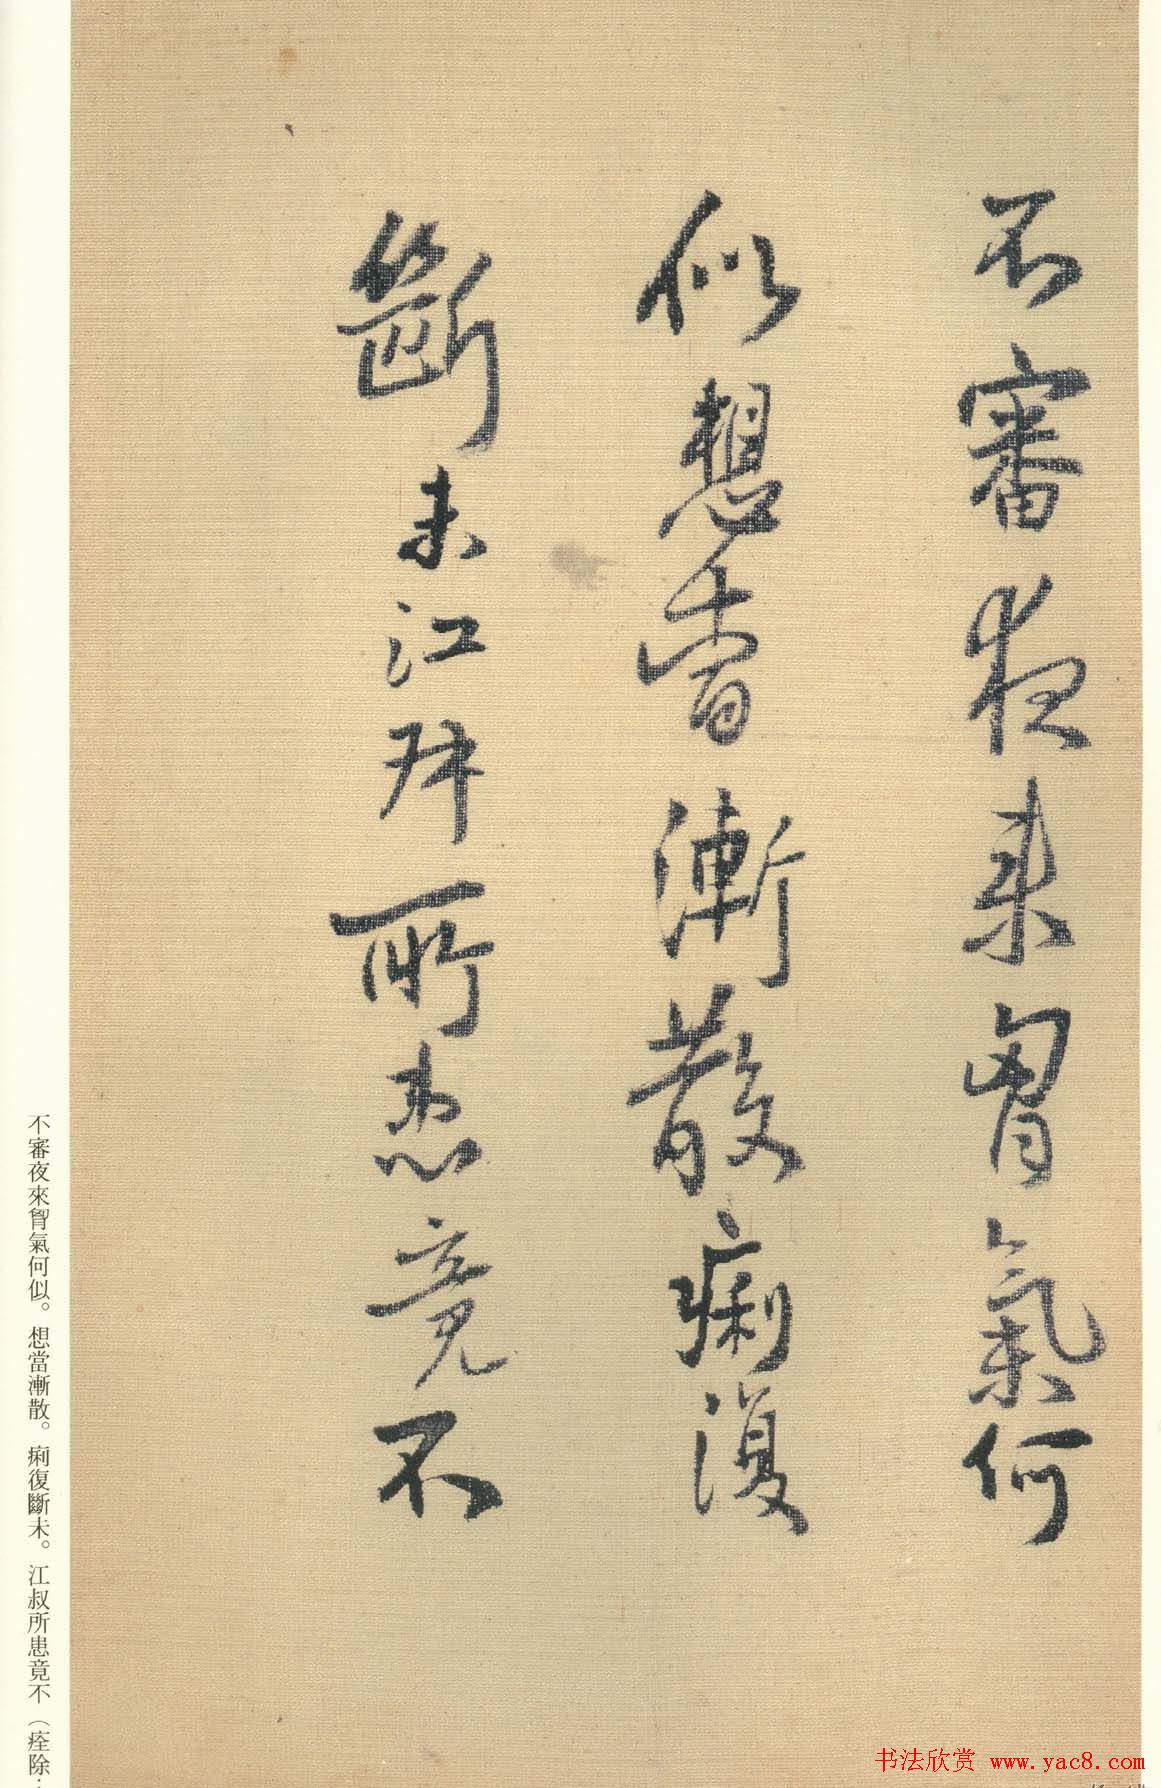 不審夜來胷氣何
似想當漸散痢復
斷未江叔所患竟不
不審夜來胷氣何似。想當漸散。痢復斷未。江叔所患竟不（痊除
书法欣赏 www.yac8.com